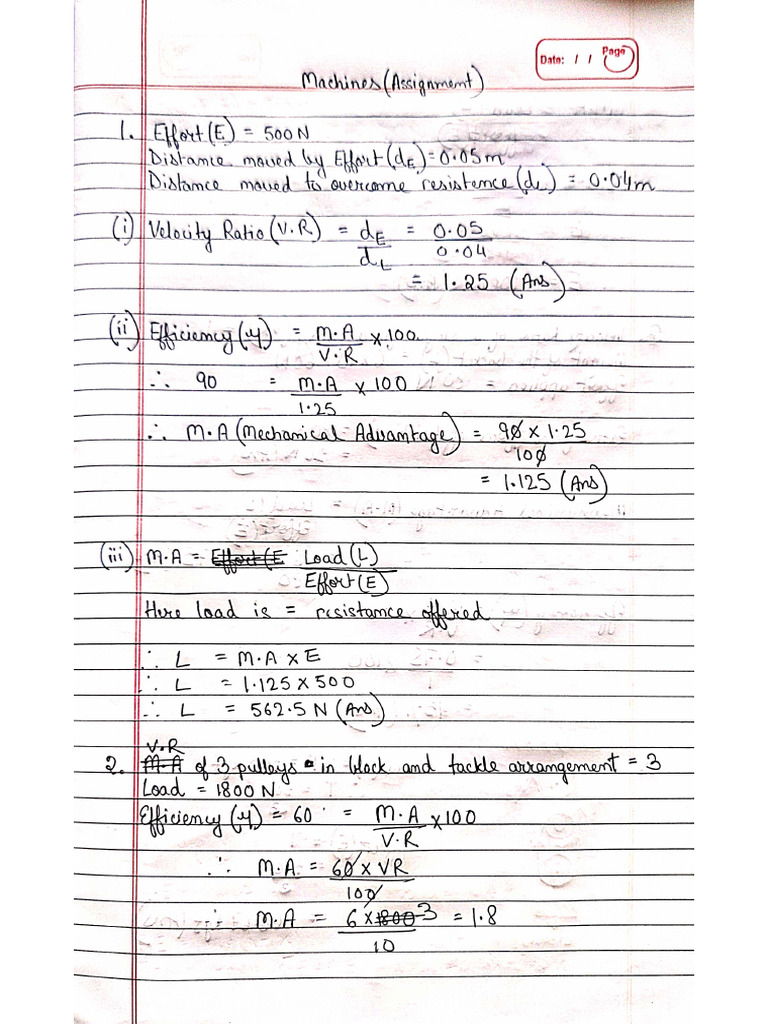 Date: / / Page
Machines (Assignment)
1. Effort (E) = 500 N
Distance moved by Effort (dE) = 0.05m
Distance moved to overcome resistence (dL) = 0.04m
(i) Velocity Ratio (V.R) = dE/dL = 0.05/0.04
= 1.25 (Ans)
(ii) Efficiency (η) = M.A/V.R × 100
∴ 90 = M.A/1.25 × 100
∴ M.A (Mechanical Advantage) = 90 × 1.25/100
= 1.125 (Ans)
(iii) M.A = Effort (E Load (L)/Effort (E)
Here load is = resistance offered
∴ L = M.A × E
∴ L = 1.125 × 500
∴ L = 562.5 N (Ans)
V.R
2. M.A of 3 pulleys in block and tackle arrangement = 3
Load = 1800 N
Efficiency (η) = 60 = M.A/V.R × 100
∴ M.A = 60 × VR/100
M.A = 6 × 1800 3/10 = 1.8